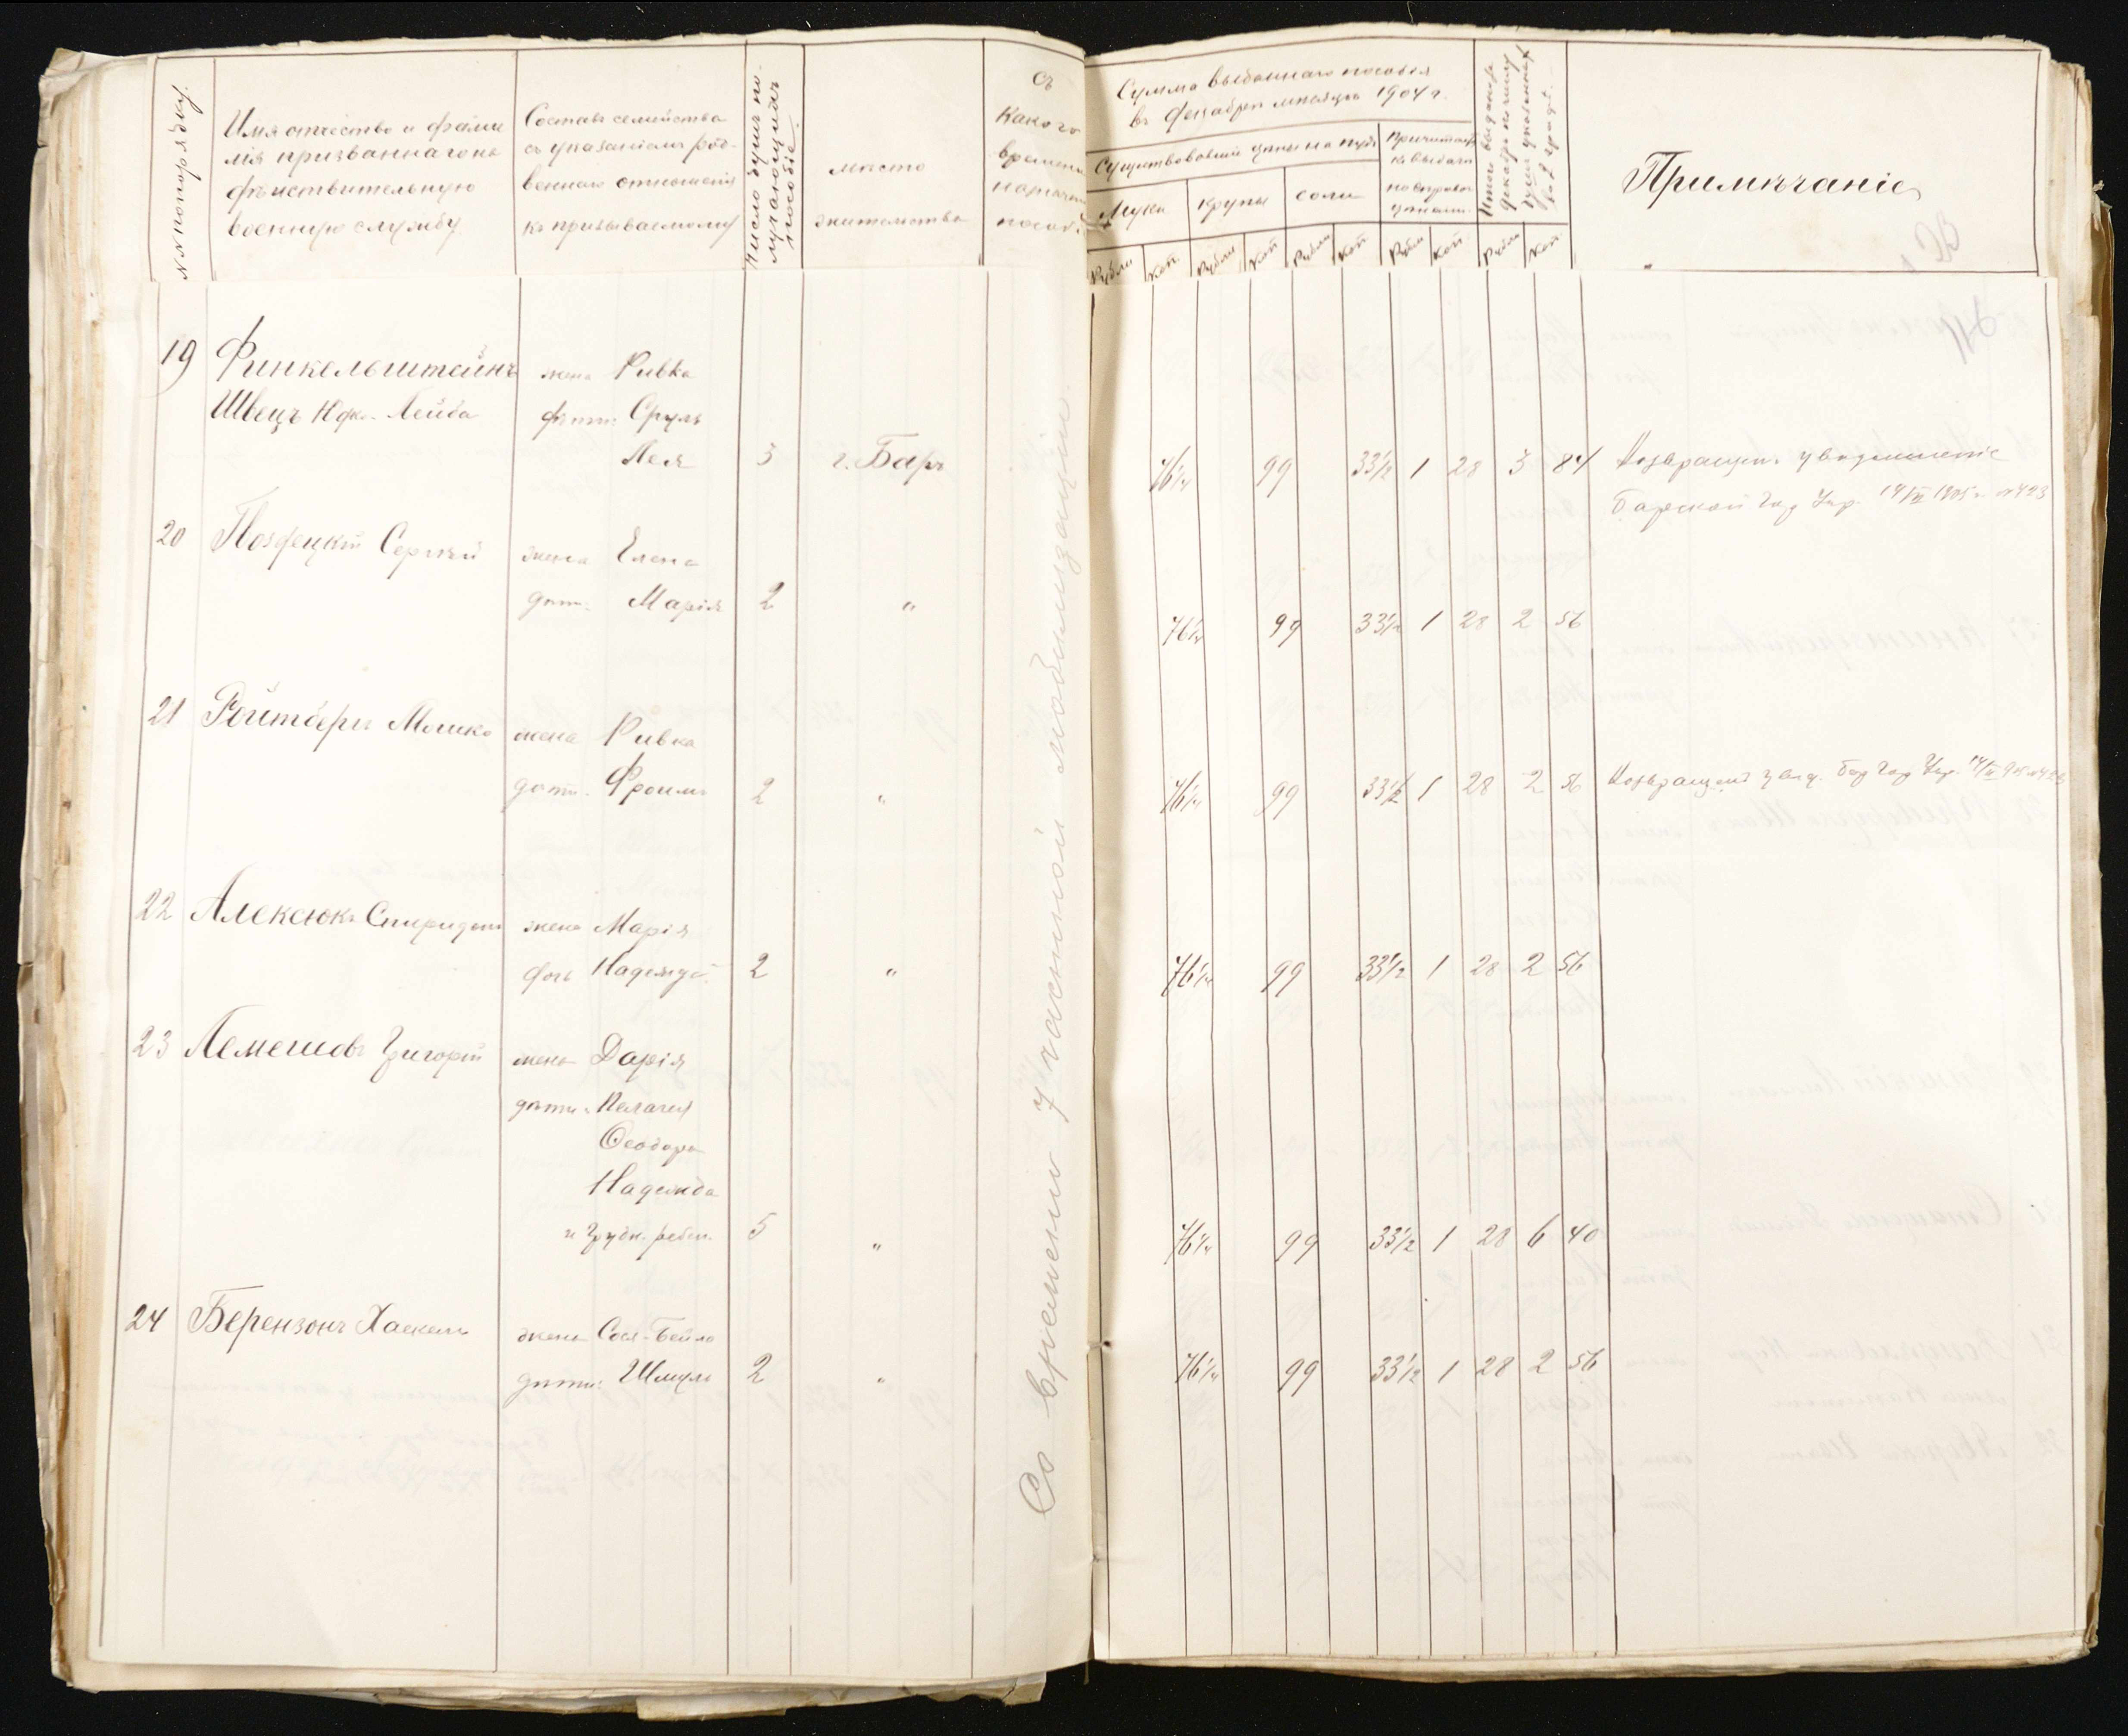 №№ по порядку.
Имя отчество и фами
лія призваннаго на
дѣйствительную
военную службу
Составъ семейства
съ указаніемъ род-
веннаго отношенія
къ призываемому
Число душъ по-
лучающихъ
пособіе
мѣсто
жительства
съ
какого
времени
назначен
пособ.
Сумма выданнаго пособія
въ Декабрѣ мѣсяцѣ 1904 г.
Существовавшія цѣны на пудъ
Муки
крупы
соли
Причитает
къ выдачи
цѣнами.
Итого выдано въ
декабрѣ по числу
душъ
Рубли
коп
Рубли
коп
Рубли
коп
Рубли
коп
Рубли
коп
Примѣчаніе
19 Финкельштейнъ жена Ривка
Швецъ Лейба дѣти: Сруль
Лея 3 г. Баръ 76¼ 99 33½ 1 28 3 84 Возвращен. увѣдомленіе
Барской Гор Упр. 14/II 1905 г. №423
20 Поздецкій Сергѣй жена Елена
дѣти: Марія 2 " 76¼ 99 33½ 1 28 2 56
21 Ройтберъ Мошко жена Ривка
дѣти. Фроимъ 2 " 76¼ 99 33½ 1 28 2 56 Возвращено увѣд. Бар Гор Упр. 14/II 905 №423
22 Алексюкъ Спиридонъ жена Марія
дочь Надежда 2 " 76¼ 99 33½ 1 28 2 56
23 Лемешовъ Григорій жена Дарія
дѣти: Пелагея
Ѳеодора
Надежда
и Грудн. ребен. 5 " 76¼ 99 33½ 1 28 6 40
24 Берензонъ Хаскель жена Сося-Бейла
дѣти: Шмуль 2 " 76¼ 99 33½ 1 28 2 56
Со времени 7 частной мобилизаціи